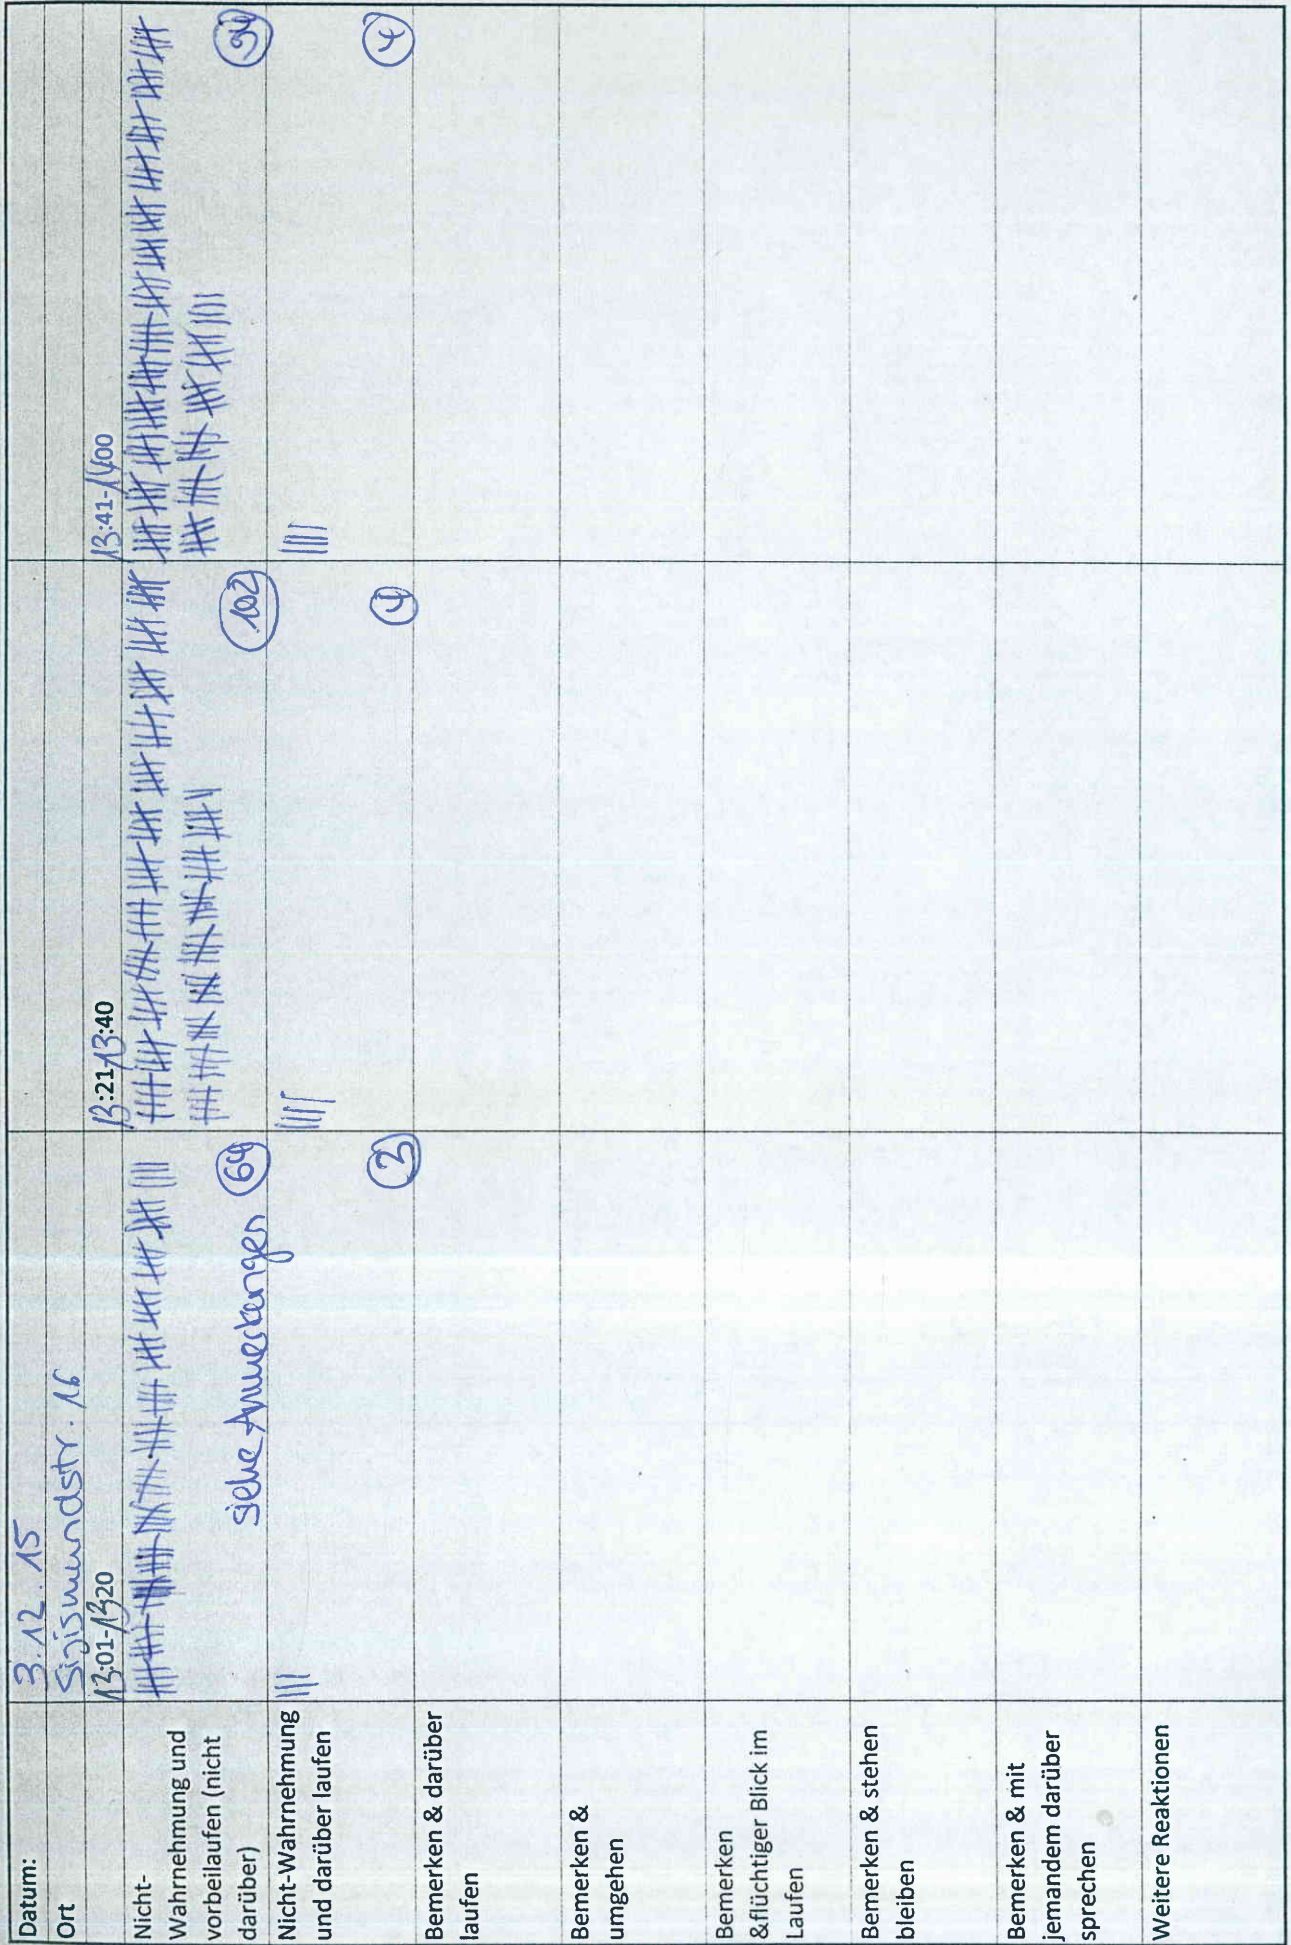 Datum: 3.12.15
Ort Sigismundstr. 16
13:01-1320 13:21-13:40 13:41-1400
Nicht-
Wahrnehmung und
vorbeilaufen (nicht
darüber)
siehe Anmerkungen 64 102
Nicht-Wahrnehmung
und darüber laufen
3 4 4
Bemerken & darüber
laufen
Bemerken &
umgehen
Bemerken
&flüchtiger Blick im
Laufen
Bemerken & stehen
bleiben
Bemerken & mit
jemandem darüber
sprechen
Weitere Reaktionen